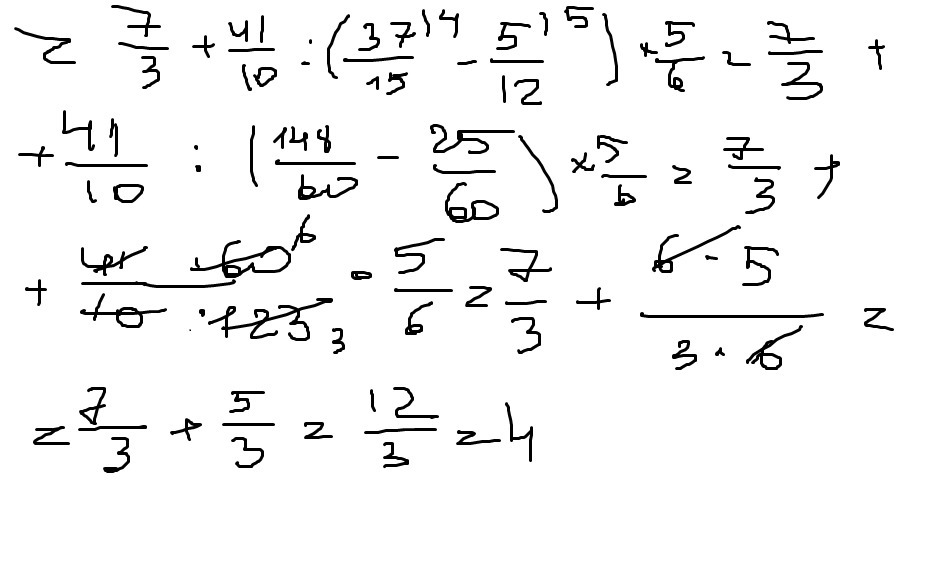 = 7/3 + 41/10 : (37^14/15 - 5^15/12) × 5/6 = 7/3 +
+ 41/10 : (148/60 - 25/60) × 5/6 = 7/3 +
+ 41 · 60 6/10 · 123 3 · 5/6 = 7/3 + 6 · 5/3 · 6 =
= 7/3 + 5/3 = 12/3 = 4